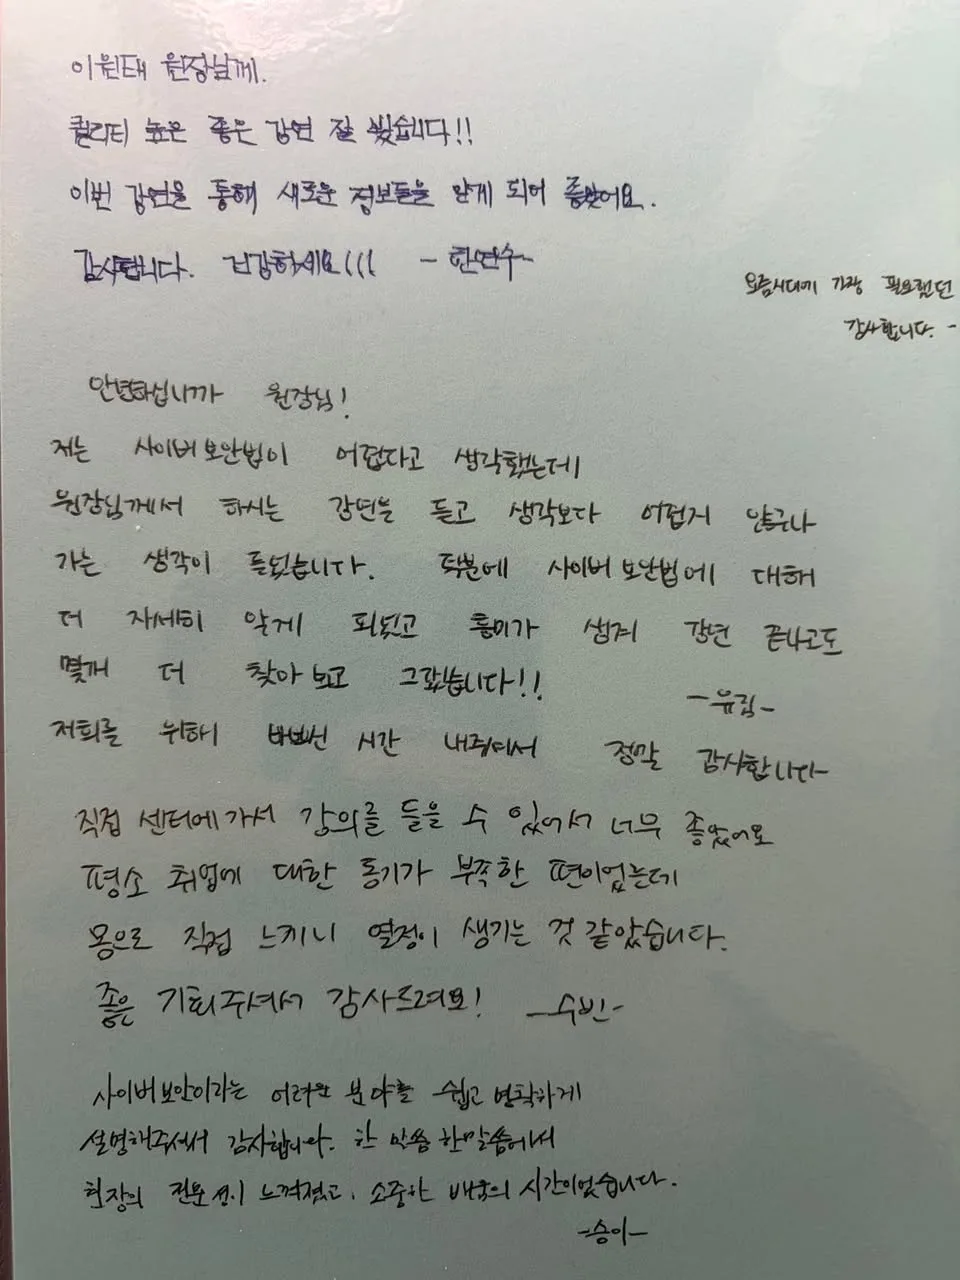 이원태 원장님께.
퀄리티 높은 좋은 강연 잘 봤습니다!!
이번 강연을 통해 새로운 정보들을 알게 되어 좋았어요.
감사합니다. 건강하세요(((  - 한연수-
요즘시대에 가장 필요했던
감사합니다. -
안녕하십니까 원장님!
저는 사이버보안법이 어렵다고 생각했는데
원장님께서 하시는 강연을 듣고 생각보다 어렵지 않구나
가는 생각이 들었습니다. 덕분에 사이버보안법에 대해
더 자세히 알게 되었고 흥미가 생겨 강연 끝나고도
몇개 더 찾아보고 그랬습니다!! -유림-
저희를 위해 바쁘신 시간 내주셔서 정말 감사합니다-
직접 센터에가서 강의를 들을 수 있어서 너무 좋았어요
평소 취업에 대한 동기가 부족한 편이었는데
몸으로 직접 느끼니 열정이 생기는 것 같았습니다.
좋은 기회주셔서 감사드려요! -수빈-
사이버보안이라는 어려운 분야를 쉽고 명확하게
설명해주셔서 감사합니다. 한 말씀 한말씀에서
현장의 전문성이 느껴졌고, 소중한 배움의 시간이었습니다.
-승아-